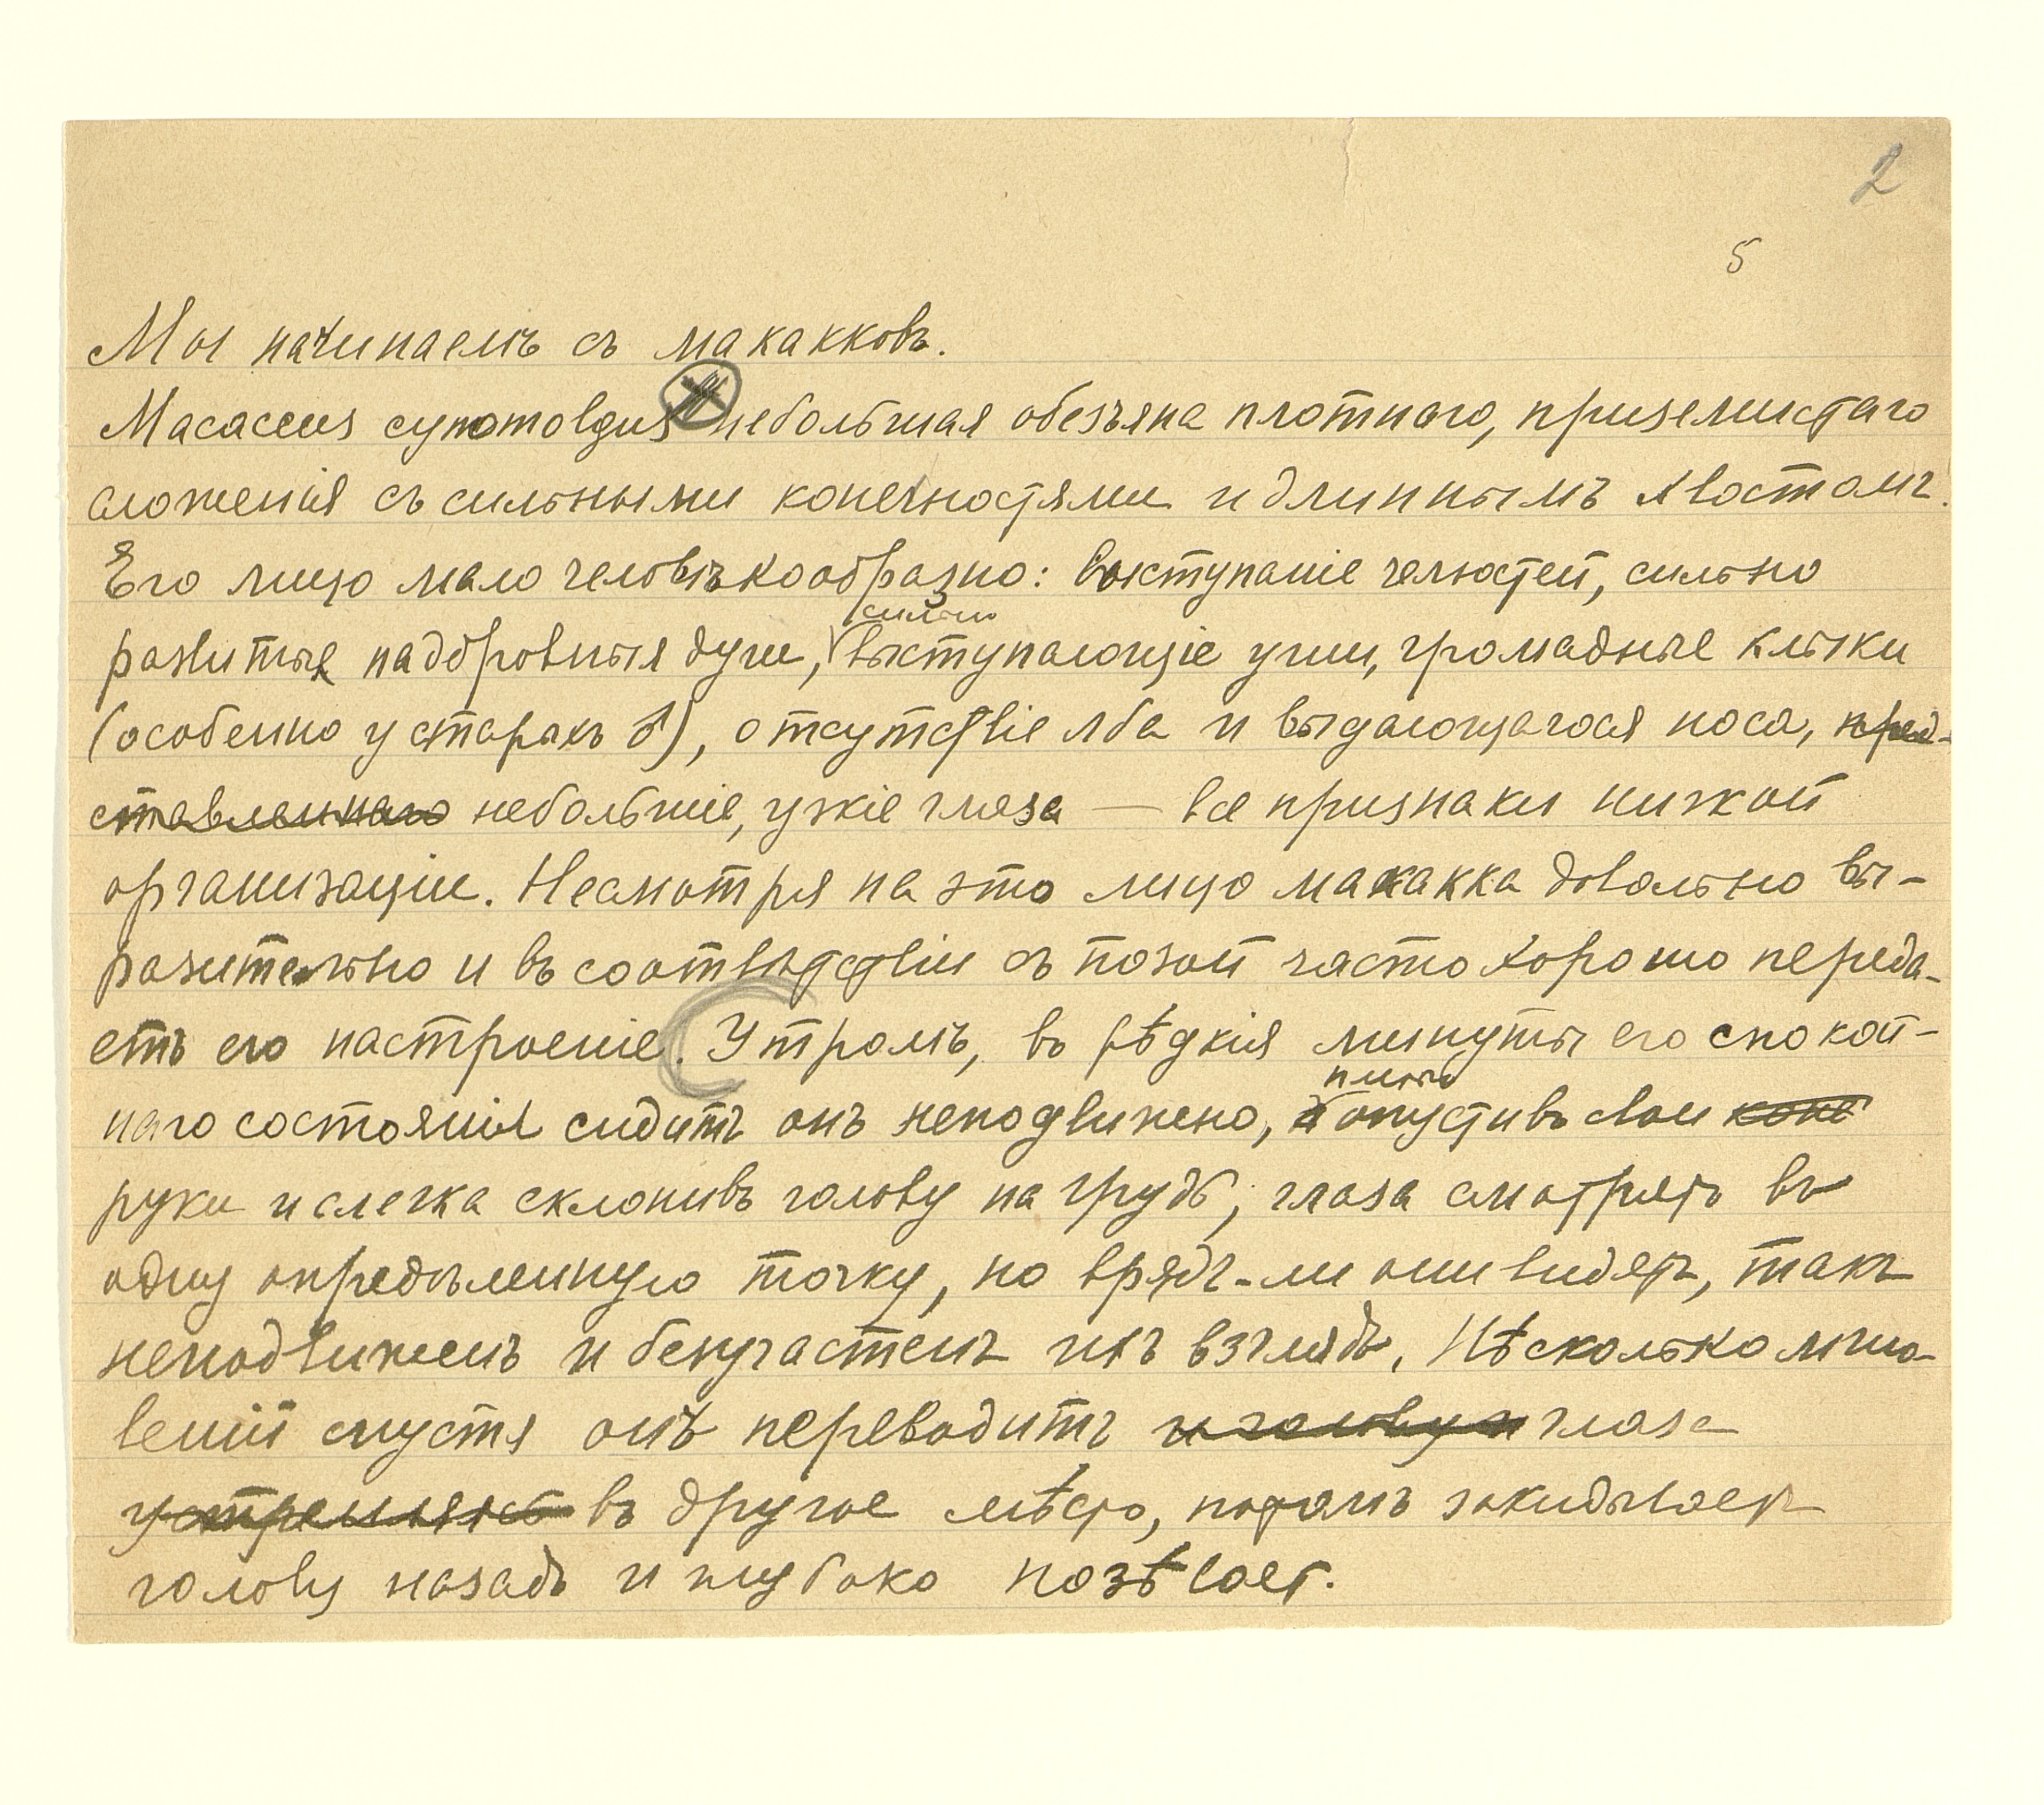 2
5
Мы начинаемъ съ макакковъ.
Macaccus cynomolgus небольшая обезьяна плотнаго, приземистаго
сложенія съ сильными конечностями и длиннымъ хвостомъ.
Его лицо мало человѣкообразно: выступаніе челюстей, сильно
сильно
развитые надбровныя дуги, выступающіе уши, громадные клыки
(особенно у старыхъ ♂), отсутствіе лба и выдающагося носа, пред-
ставленнаго небольшіе, узкіе глаза — все признаки низкой
организаціи. Несмотря на это лицо макакка довольно вы-
разительно и въ соотвѣтствіи съ позой часто хорошо переда-
етъ его настроеніе. Утромъ, въ рѣдкія минуты его спокой-
наго состоянія сидитъ онъ неподвижно, опустивъ свои коне
руки и слегка склонивъ голову на грудь; глаза смотрятъ въ
одну опредѣленную точку, но врядъ-ли они видятъ, такъ
неподвиженъ и безучастенъ ихъ взглядъ. Нѣсколько мгно-
веній спустя онъ переводитъ и голову и глаза
устремляетъ въ другое мѣсто, потомъ закидываетъ
голову назадъ и глубоко позѣвает.